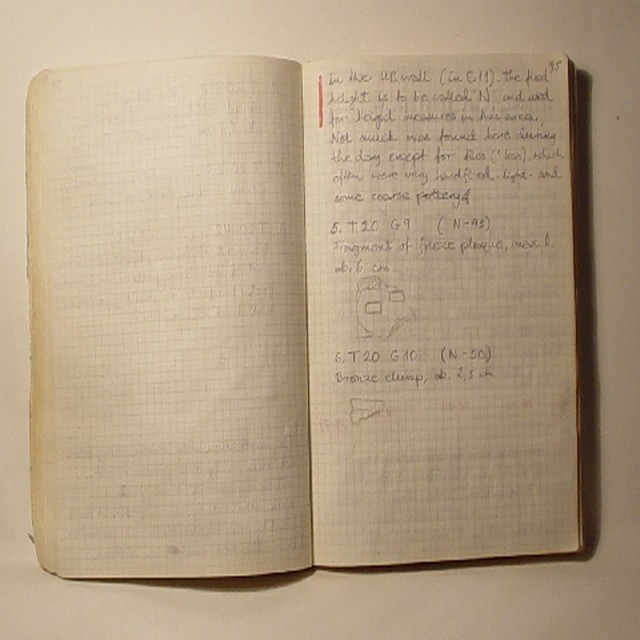 95
In the UB wall (in E11). the fixed
height is to be called N, and used
for height measures in this area.
Not much was found here during
the day except for tiles (' bas), which
often were very hard fired, light- and
some coarse pottery
5. T20 G9 (N-43)
Fragment of plaque, max l.
ab. 6 cm
6. T20 G10 (N-50)
Bronze clump, ab. 2,5 cm